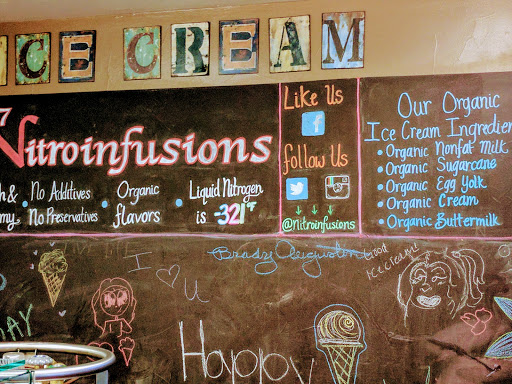 ICE CREAM
7
Nitroinfusions
No Additives
No Preservatives
• Organic
flavors
• Liquid Nitrogen
is -321°F
Like Us
f
follow Us
@Nitroinfusions
Our Organic
Ice Cream Ingredien
• Organic Nonfat Milk
• Organic Sugarcane
• Organic Egg Yolk
• Organic Cream
• Organic Buttermilk
I ♡ U
Good
Ice Cream!
DAY
Happy